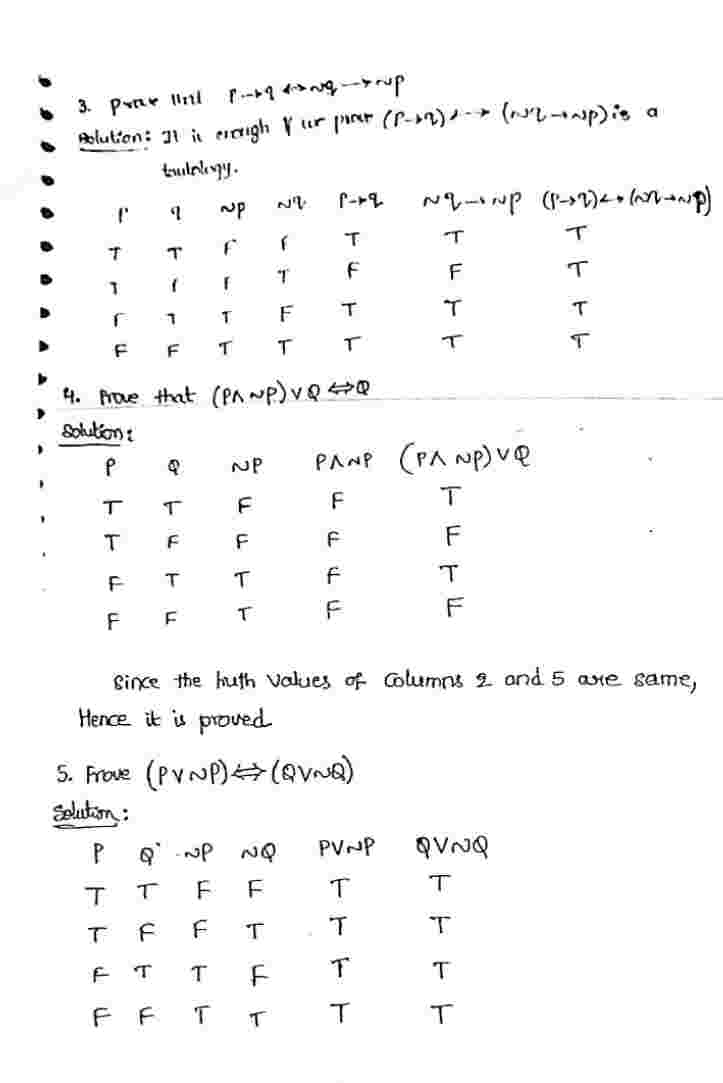 3. Prove that P→q ↔ ~q → ~p
Solution: It is enough if we prove (P→q) ↔ (~q → ~p) is a
tautology.
P q ~p ~q P→q ~q → ~p (P→q) ↔ (~q → ~p)
T T F F T T T
T F F T F F T
F T T F T T T
F F T T T T T
4. Prove that (P∧~P)∨Q ⇔ Q
Solution:
P Q ~P P∧~P (P∧ ~P)∨Q
T T F F T
T F F F F
F T T F T
F F T F F
Since the truth values of columns 2 and 5 are same,
Hence it is proved
5. Prove (P∨~P) ⇔ (Q∨~Q)
Solution:
P Q ~P ~Q P∨~P Q∨~Q
T T F F T T
T F F T T T
F T T F T T
F F T T T T